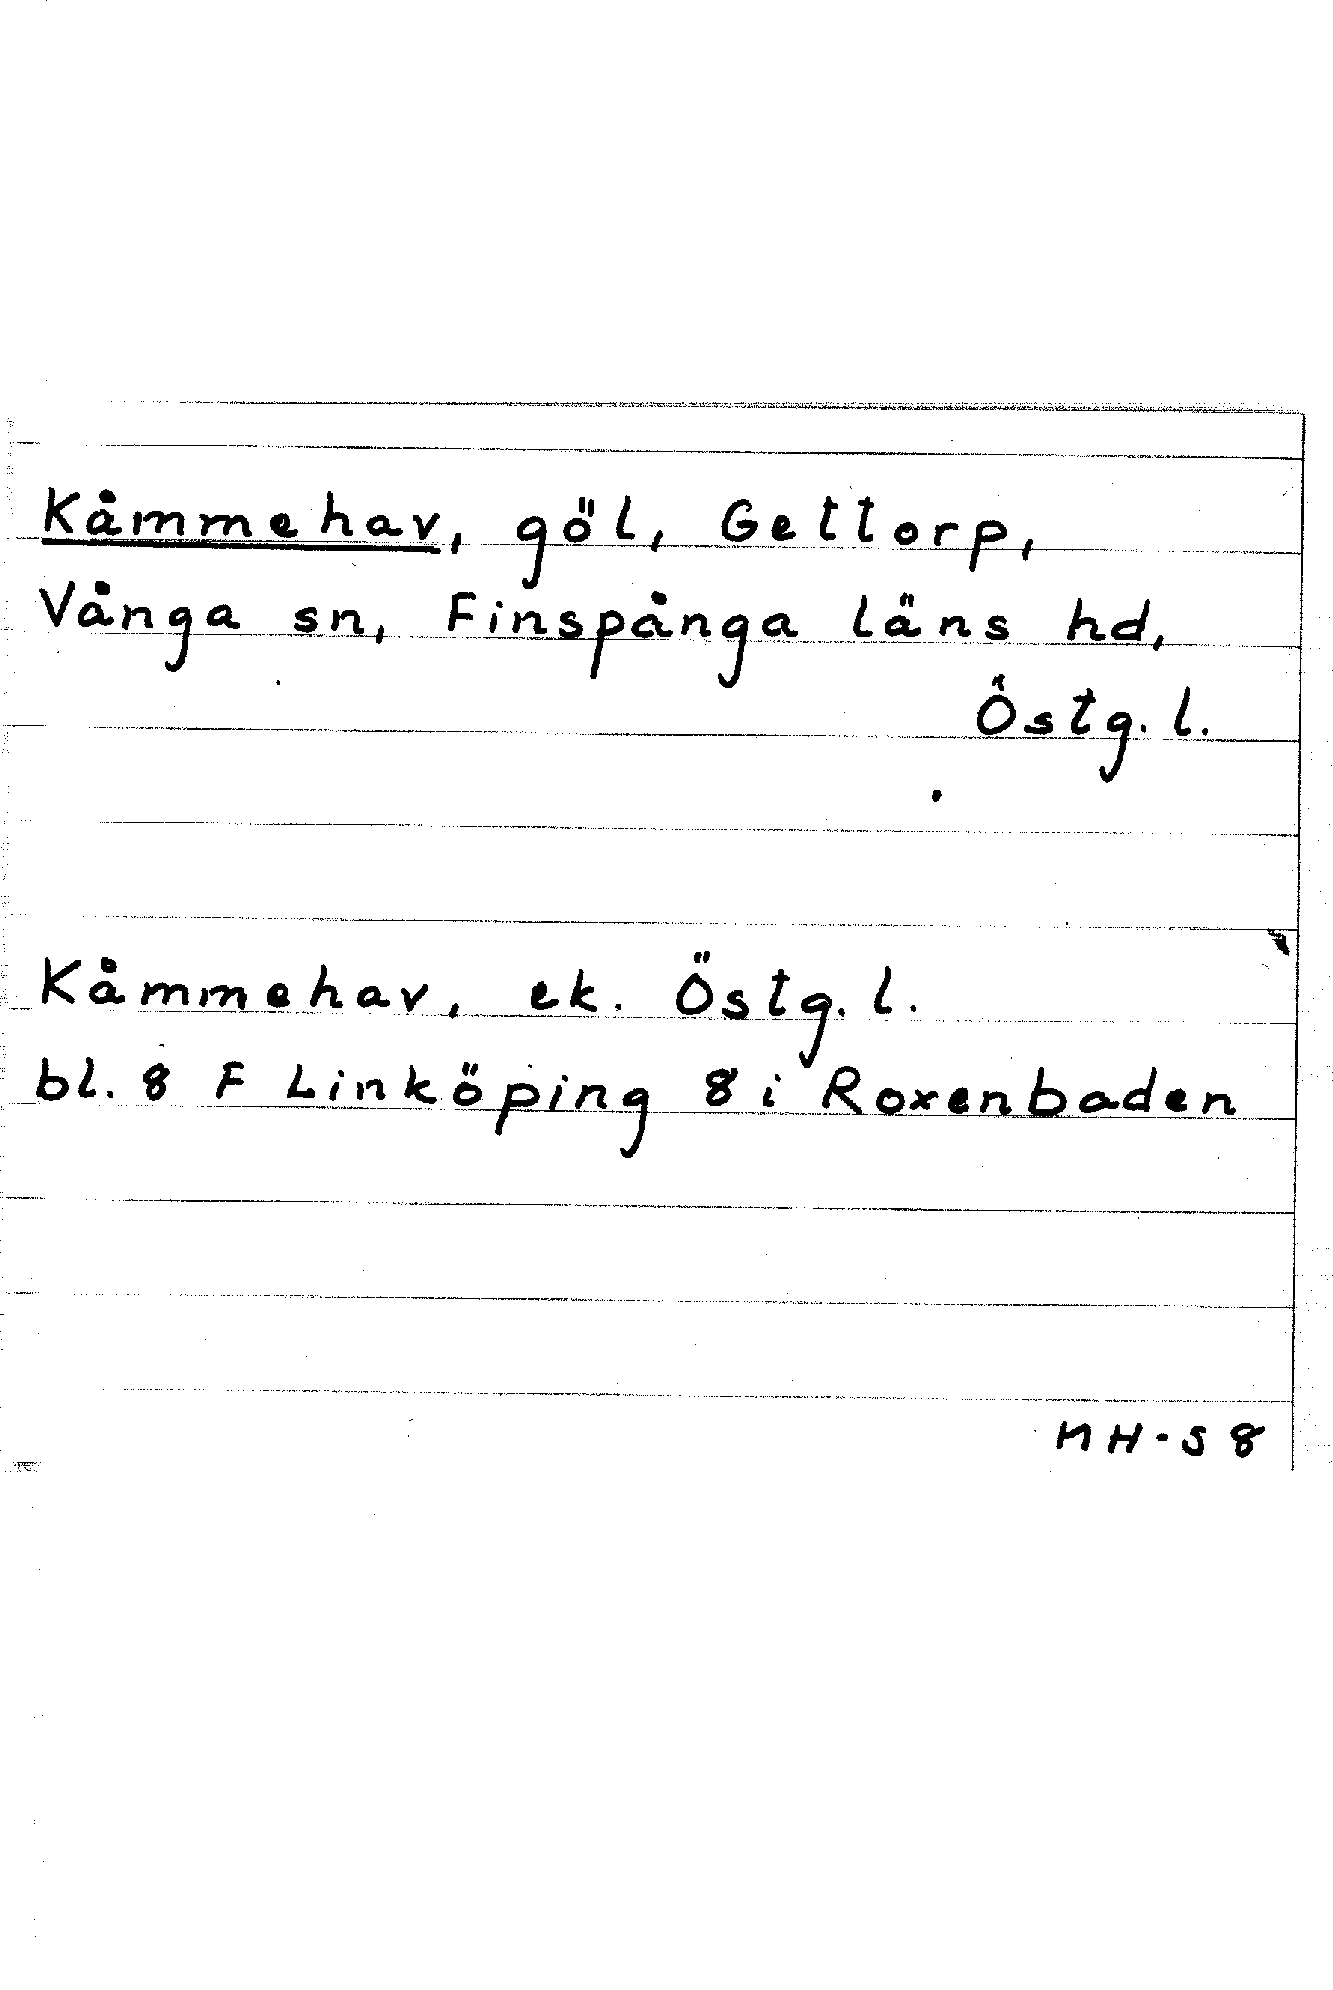 Kåmmehav, göl, Gettorp,
Vånga sn, Finspånga läns hd,
Östg. l.
Kåmmehav, ek. Östg. l.
bl. 8 F Linköping 8 i Roxenbaden
MH-S8